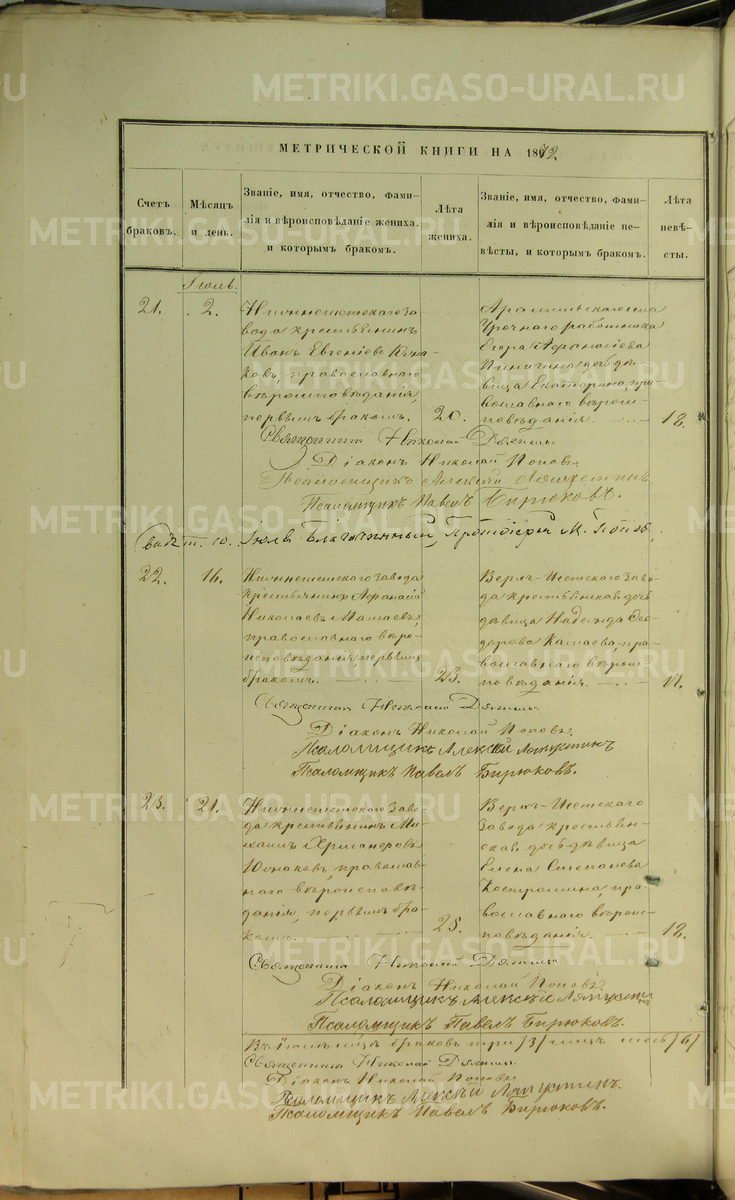 МЕТРИЧЕСКОЙ КНИГИ НА 1872
Счетъ
браковъ.
Мѣсяцъ
и день.
Званіе, имя, отчество, фами-
лія и вѣроисповѣданіе жениха.
и которымъ бракомъ.
Лѣта
жениха.
Званіе, имя, отчество, фами-
лія и вѣроисповѣданіе не-
вѣсты, и которымъ бракомъ.
Лѣта
невѣ-
сты.
Іюль.
21.
2.
Нижнеисетскаго за
вода крестьянинъ
Иванъ Евгеніевъ
ковъ, православнаго
вѣроисповѣданія,
первымъ бракомъ.
20.
Арамильскаго села
Урочнаго работника
Егора Афанасіева
дочь дѣ-
вица Екатерина, пра-
вославнаго вѣроис-
повѣданія.
18.
Священникъ Николай
Діаконъ Николай Поповъ.
Псаломщикъ Алексій
Псаломщикъ Павелъ Бирюковъ.
Іюля Благочинный, Протоіерей М. Поповъ.
22.
16.
Нижнеисетскаго завода
крестьянинъ Афанасій
Николаевъ
православнаго вѣро-
исповѣданія, первымъ
бракомъ.
23.
Верхъ-Исетскаго заво-
да крестьянская дочь
дѣвица Надежда Ѳео-
дорова пра-
вославнаго вѣроис-
повѣданія.
Священникъ Николай
Діаконъ Николай Поповъ.
Псаломщикъ Алексій
Псаломщикъ Павелъ Бирюковъ.
23.
21.
Нижнеисетскаго заво-
да крестьянинъ Ми-
хаилъ
православ-
наго вѣроисповѣ-
данія, первымъ бра-
комъ.
25.
Верхъ-Исетскаго
завода крестьян-
ская дочь дѣвица
Елена Степанова
Костромина, пра-
вославнаго вѣроис-
повѣданія.
18.
Священникъ Николай
Діаконъ Николай Поповъ.
Псаломщикъ Алексій
Псаломщикъ Павелъ Бирюковъ.
Въ Іюлѣ м-цѣ браковъ три /3/ лицъ шесть /6/
Священникъ Николай
Діаконъ Николай Поповъ.
Псаломщикъ Алексій
Псаломщикъ Павелъ Бирюковъ.
METRIKI.GASO-URAL.RU